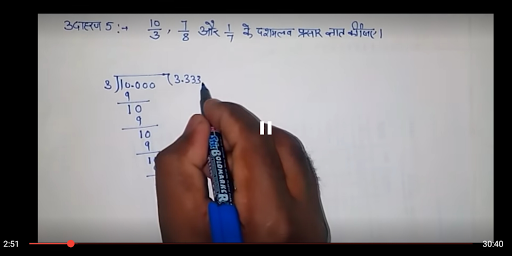 उदाहरण 5:- 10/3, 7/8 और 1/7 के दशमलव प्रसार ज्ञात कीजिए।
3)10.000(3.333
9
10
9
10
9
1
BOLDMARKER
2:51 30:40